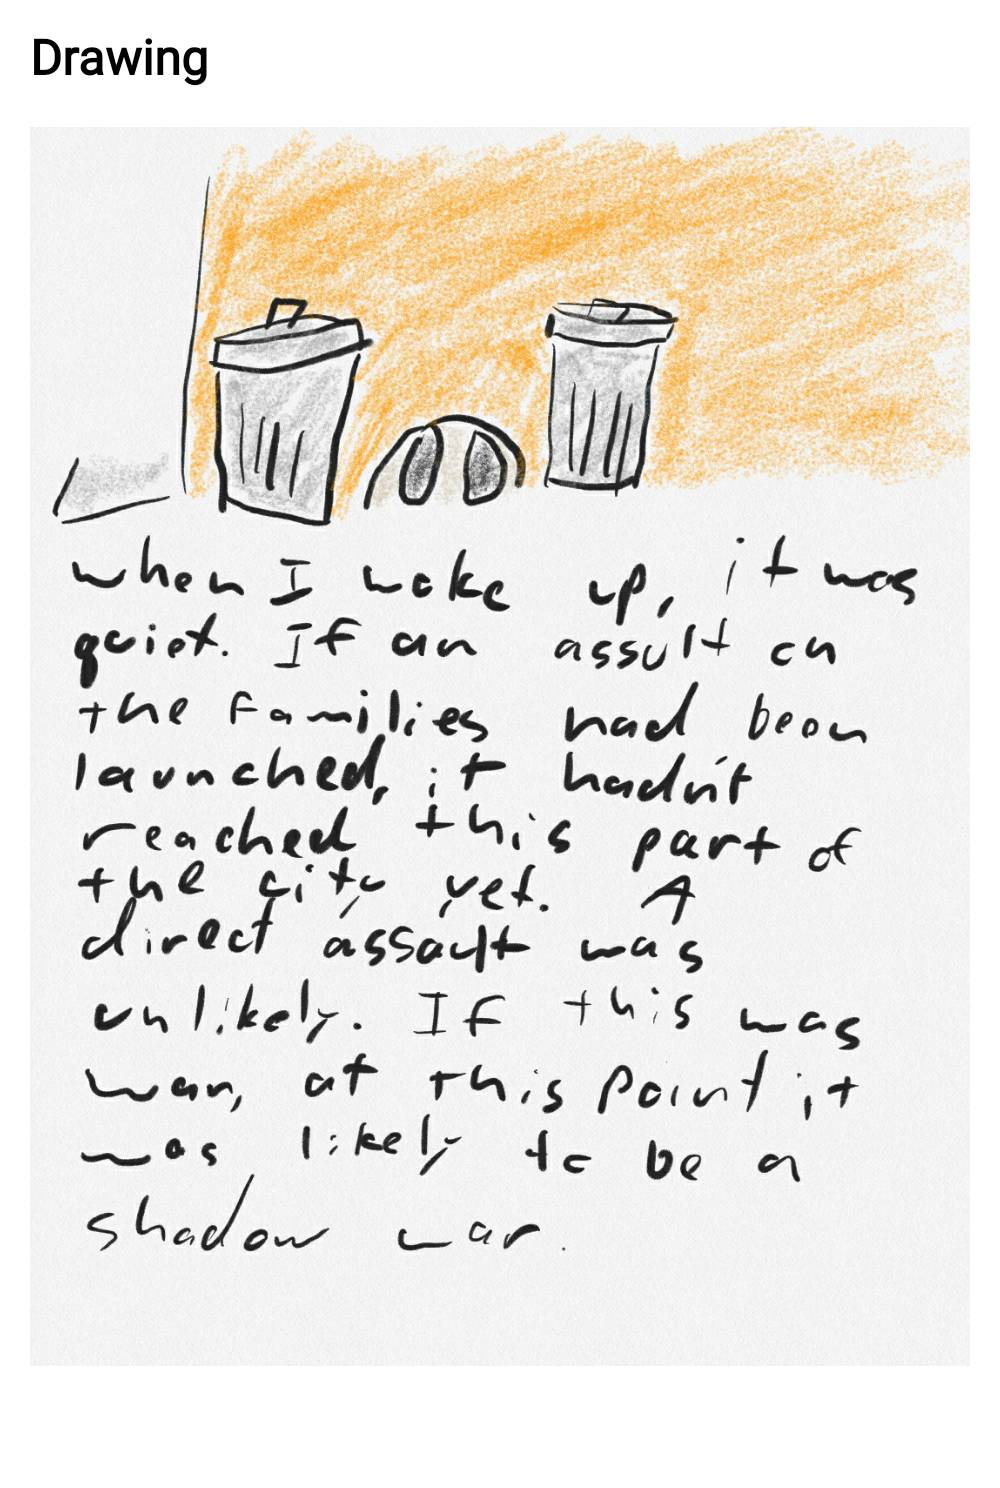 Drawing
when I woke up, it was
quiet. If an assult on
the families had been
launched, it hadn't
reached this part of
the city yet. A
direct assault was
unlikely. If this was
war, at this point it
was likely to be a
shadow war.